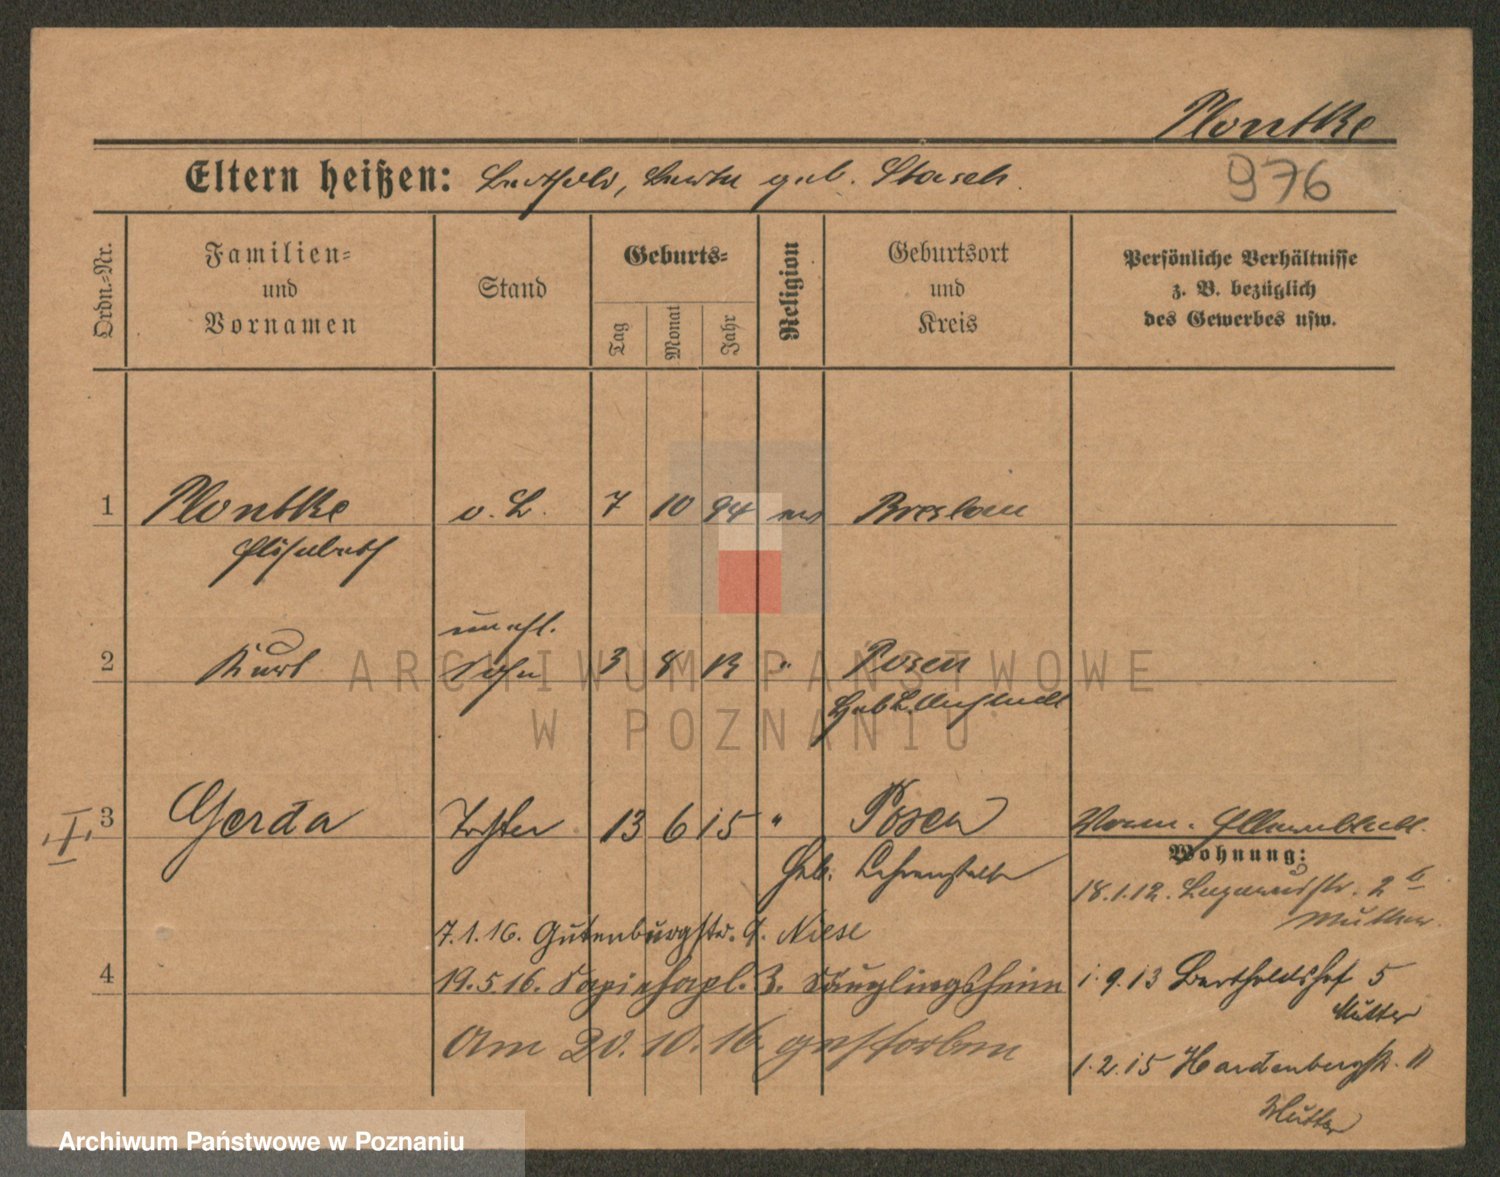 Plontke
976
Eltern heißen: Berthold, geb. Stasch.
Ordn.-Nr.
Familien- und Vornamen
Stand
Geburts-
Tag
Monat
Jahr
Religion
Geburtsort und Kreis
Persönliche Verhältnisse z. B. bezüglich des Gewerbes usw.
1 Plontke o. B. 7 10 94 ev Breslau
Elisabeth
unehl.
2 Kurt Sohn 3 8 13 " Posen
I 3 Gerda Tochter 13 6 15 " Posen
Wohnung:
Geb. Lehranstalt
18.1.12. 2
Mutter.
7.1.16. Gutenburgstr. 9. Niese
4 19.5.16. Sapiehapl. 3. Säuglingsheim
1.9.13 Bertholdshof 5
Mutter
Am 20.10.16. gestorben
1.2.15 Hardenbergstr. 11
Mutter
ARCHIWUM PAŃSTWOWE
W POZNANIU
Archiwum Państwowe w Poznaniu